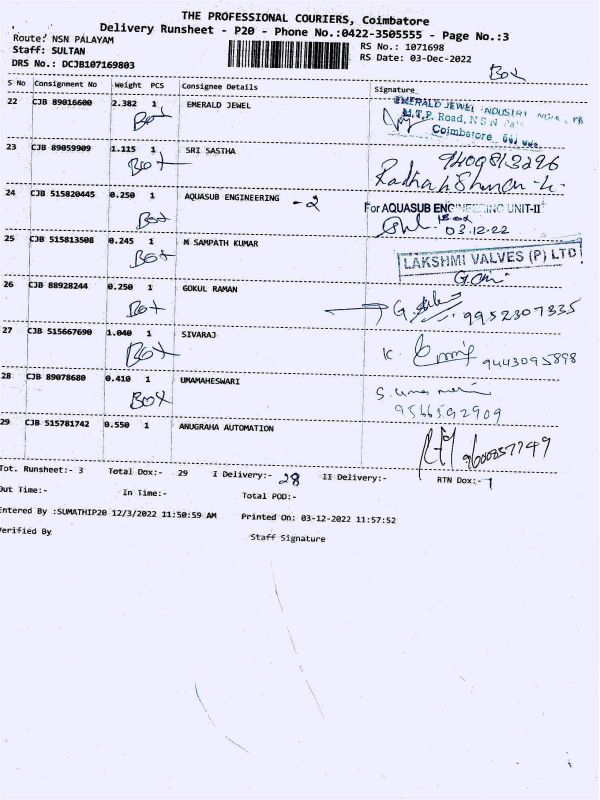 THE PROFESSIONAL COURIERS, Coimbatore
Delivery Runsheet - P20 - Phone No.:0422-3505555 - Page No.:3
Route: NSN PALAYAM
RS No.: 1071698
Staff: SULTAN
RS Date: 03-Dec-2022
DRS No.: DCJB107169803
Box
S No Consignment No Weight PCS Consignee Details Signature
22 CJB 89016600 2.382 1 EMERALD JEWEL
Box
EMERALD JEWEL INDUSTRY
M.T.P. Road, N S N
Coimbatore
23 CJB 89059909 1.115 1 SRI SASTHA
Box
9409813296
24 CJB 515820445 0.250 1 AQUASUB ENGINEERING - 2
Box
For AQUASUB ENGINEERING UNIT-II
Box
03.12.22
25 CJB 515813508 0.245 1 M SAMPATH KUMAR
Box
LAKSHMI VALVES (P) LTD
26 CJB 88928244 0.250 1 GOKUL RAMAN
Box
9952307335
27 CJB 515667690 1.040 1 SIVARAJ
Box
K.
9443095898
28 CJB 89078680 0.410 1 UMAMAHESWARI
Box
9566592909
29 CJB 515781742 0.550 1 ANUGRAHA AUTOMATION
9600857749
Tot. Runsheet:- 3 Total Dox:- 29 I Delivery:- 28 II Delivery:- RTN Dox:- 1
Out Time:- In Time:- Total POD:-
Entered By :SUMATHIP20 12/3/2022 11:50:59 AM Printed On: 03-12-2022 11:57:52
Verified By Staff Signature